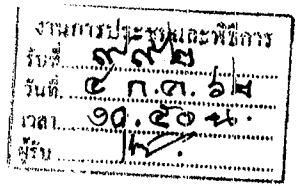 งานการประชุมและพิธีการ
รับที่ ๙๙๒
วันที่ ๔ ก.ค. ๖๒
เวลา ๑๐.๕๐ น.
ผู้รับ